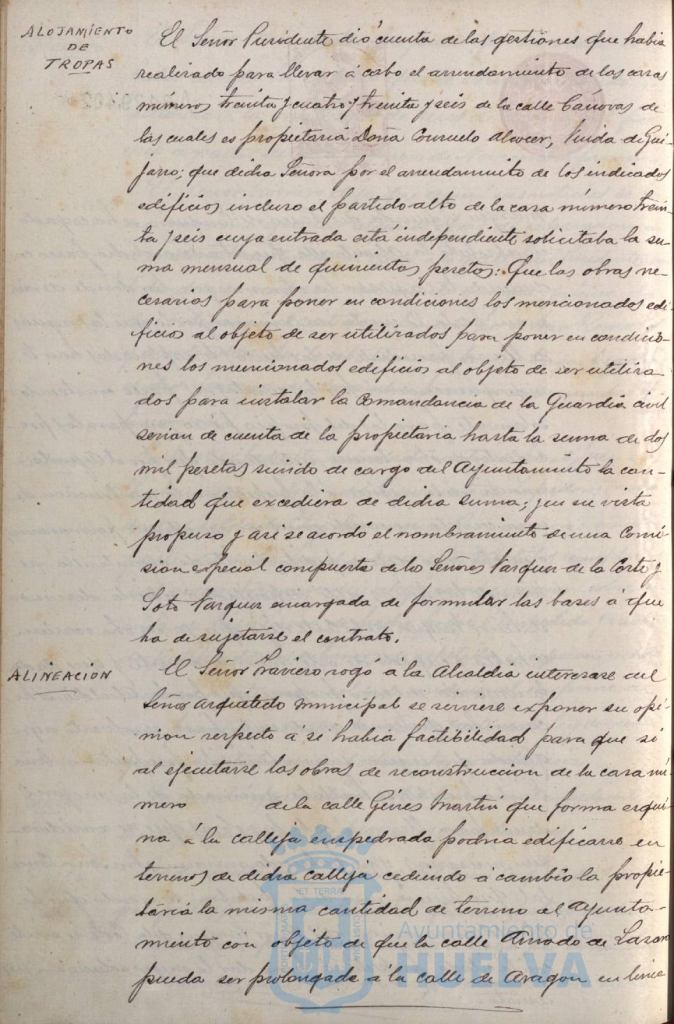 ALOJAMIENTO
DE
TROPAS
El Señor Presidente dió cuenta de las gestiones que habia
realizado para llevar á cabo el arrendamiento de las casas
números treinta y cuatro y treinta y seis de la calle Cánovas de
las cuales es propietaria Doña Consuelo Alcocer, Viuda de Gui-
jarro; que dicha Señora por el arrendamiento de los indicados
edificios incluso el partido alto de la casa número trein-
ta y seis cuya entrada está independiente solicitaba la su-
ma mensual de quinientas pesetas: Que las obras ne-
cesarias para poner en condiciones los mencionados edi-
ficios al objeto de ser utilizados para poner en condicio-
nes los mencionados edificios al objeto de ser utiliza
dos para instalar la Comandancia de la Guardia civil
serian de cuenta de la propietaria hasta la suma de dos
mil pesetas siendo de cargo del Ayuntamiento la can-
tidad que excediera de dicha suma; y en su vista
propuso y asi se acordó el nombramiento de una Comi-
sion especial compuesta de los Señores Vazquez de la Corte y
Soto Vazquez encargada de formular las bases á que
ha de sujetarse el contrato.
ALINEACIÓN
El Señor Traviero rogó á la Alcaldia interesase del
Señor Arquitecto municipal se sirviese exponer su opi-
nion respecto á si habia factibilidad para que si
al ejecutarse las obras de reconstruccion de la casa nú-
mero de la calle Ginés Martin que forma esqui-
na á la calleja empedrada podria edificarse en
terrenos de dicha calleja cediendo á cambio la propie-
taria la misma cantidad de terreno al Ayunta-
miento con objeto de que la calle de Lazaro
pueda ser prolongada á la calle de Aragon en linea
Ayuntamiento de
HUELVA